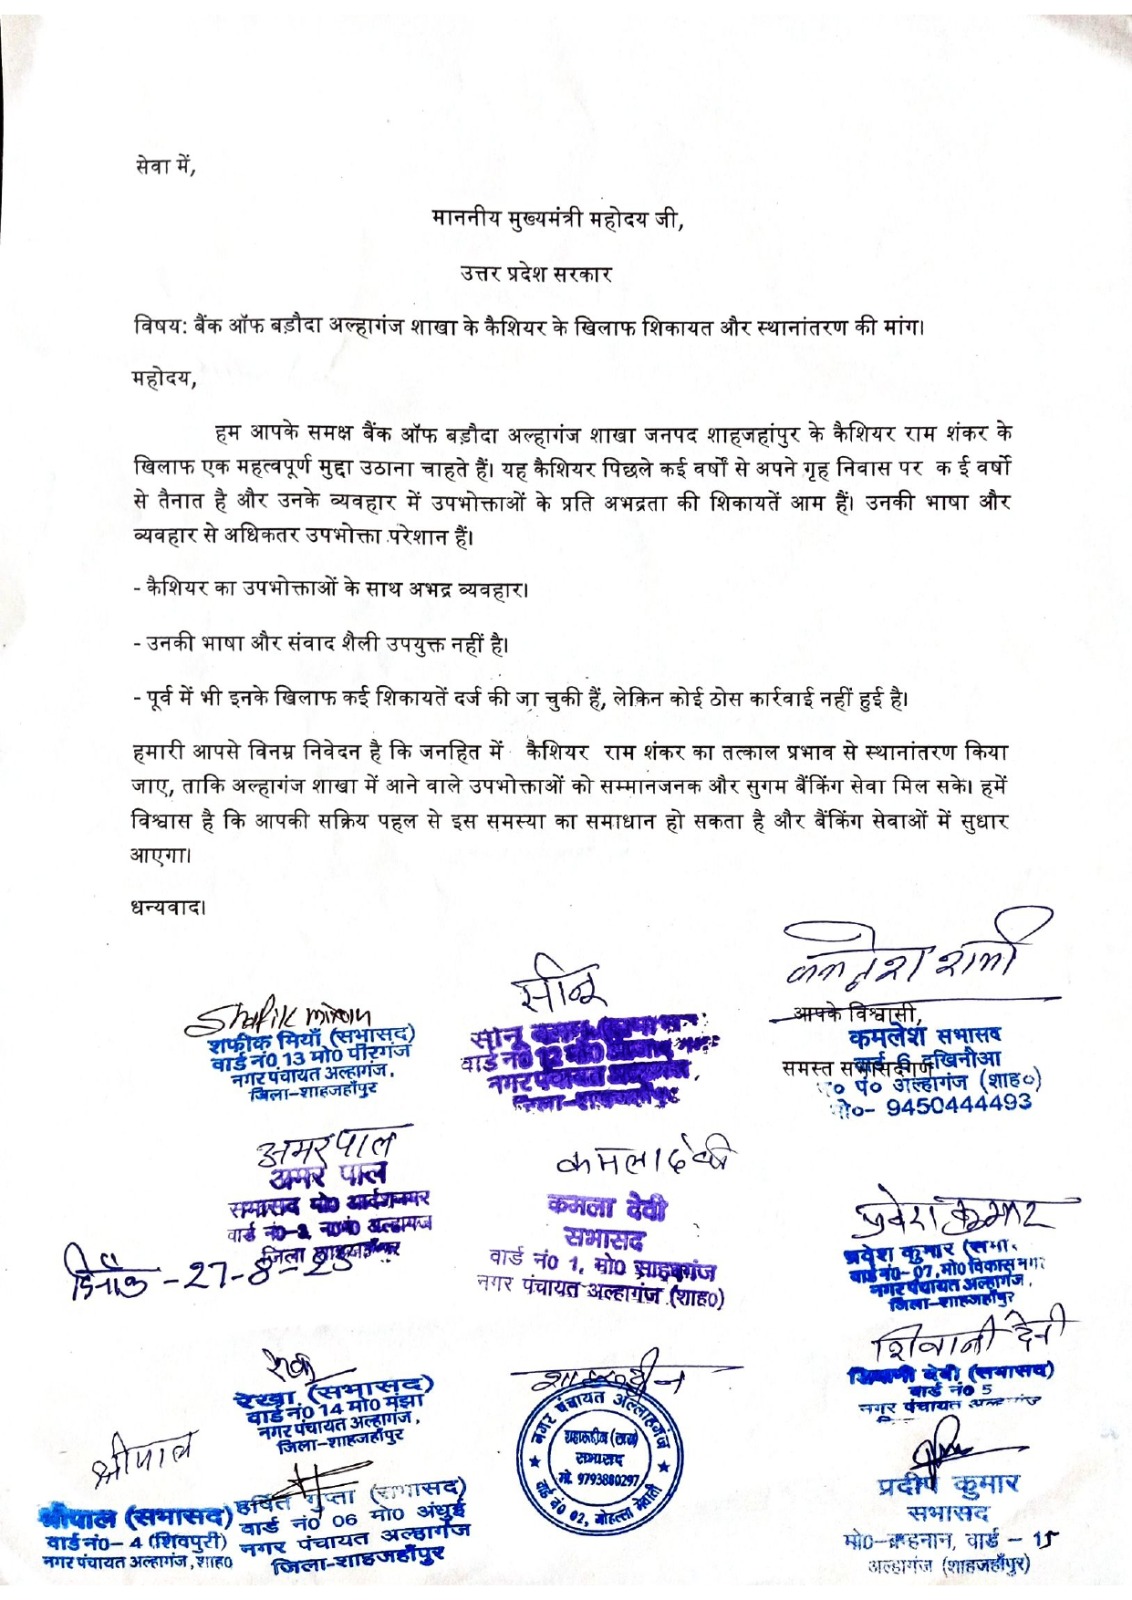 सेवा में,
माननीय मुख्यमंत्री महोदय जी,
उत्तर प्रदेश सरकार
विषय: बैंक ऑफ बड़ौदा अल्हागंज शाखा के कैशियर के खिलाफ शिकायत और स्थानांतरण की मांग।
महोदय,
हम आपके समक्ष बैंक ऑफ बड़ौदा अल्हागंज शाखा जनपद शाहजहांपुर के कैशियर राम शंकर के
खिलाफ एक महत्वपूर्ण मुद्दा उठाना चाहते हैं। यह कैशियर पिछले कई वर्षों से अपने गृह निवास पर क ई वर्षो
से तैनात है और उनके व्यवहार में उपभोक्ताओं के प्रति अभद्रता की शिकायतें आम हैं। उनकी भाषा और
व्यवहार से अधिकतर उपभोक्ता परेशान हैं।
- कैशियर का उपभोक्ताओं के साथ अभद्र व्यवहार।
- उनकी भाषा और संवाद शैली उपयुक्त नहीं है।
- पूर्व में भी इनके खिलाफ कई शिकायतें दर्ज की जा चुकी हैं, लेकिन कोई ठोस कार्रवाई नहीं हुई है।
हमारी आपसे विनम्र निवेदन है कि जनहित में कैशियर राम शंकर का तत्काल प्रभाव से स्थानांतरण किया
जाए, ताकि अल्हागंज शाखा में आने वाले उपभोक्ताओं को सम्मानजनक और सुगम बैंकिंग सेवा मिल सके। हमें
विश्वास है कि आपकी सक्रिय पहल से इस समस्या का समाधान हो सकता है और बैंकिंग सेवाओं में सुधार
आएगा।
धन्यवाद।
कमलेश शर्मा
आपके विश्वासी,
कमलेश सभासद
वार्ड 6 दखिनीआ
समस्त सभासदगण
पं० अल्हागंज (शाह०)
मो०- 9450444493
Shafik miyan
शफीक मियाँ (सभासद)
वार्ड नं0 13 मो0 पीरगंज
नगर पंचायत अल्हागंज,
जिला-शाहजहाँपुर
सोनू
सोनू
वार्ड नं0 12 मो0
नगर पंचायत
जिला-शाहजहाँपुर
अमरपाल
अमर पाल
सभासद मो0 आर्दशनगर
वार्ड नं0 अल्हागंज
जिला शाहजहाँपुर
दिनाँक -27-8-25
कमला देवी
कमला देवी
सभासद
वार्ड नं0 1, मो0 साहबगंज
नगर पंचायत अल्हागंज (शाह0)
प्रवेश कुमार
प्रवेश कुमार (सभा.
वार्ड नं0- 07, मो0 विकास नगर
नगर पंचायत अल्हागंज,
जिला-शाहजहाँपुर
शिवानी देवी
शिवानी देवी (सभासद)
वार्ड नं0 5
नगर पंचायत
रेखा
रेखा (सभासद)
वार्ड नं0 14 मो0 मंझा
नगर पंचायत अल्हागंज,
जिला-शाहजहाँपुर
नगर पंचायत अल्लाहगंज
सभासद
मो. 9793880297
वार्ड नं0 02, मोहल्ला
श्रीपाल
श्रीपाल (सभासद)
वार्ड नं0- 4 (शिवपुरी)
नगर पंचायत अल्हागंज, शाह0
हर्षित गुप्ता (सभासद)
वार्ड नं0 06 मो0
नगर पंचायत अल्हागंज
जिला-शाहजहाँपुर
प्रदीप कुमार
सभासद
मो0-बहनान, वार्ड - 15
अल्हागंज (शाहजहाँपुर)